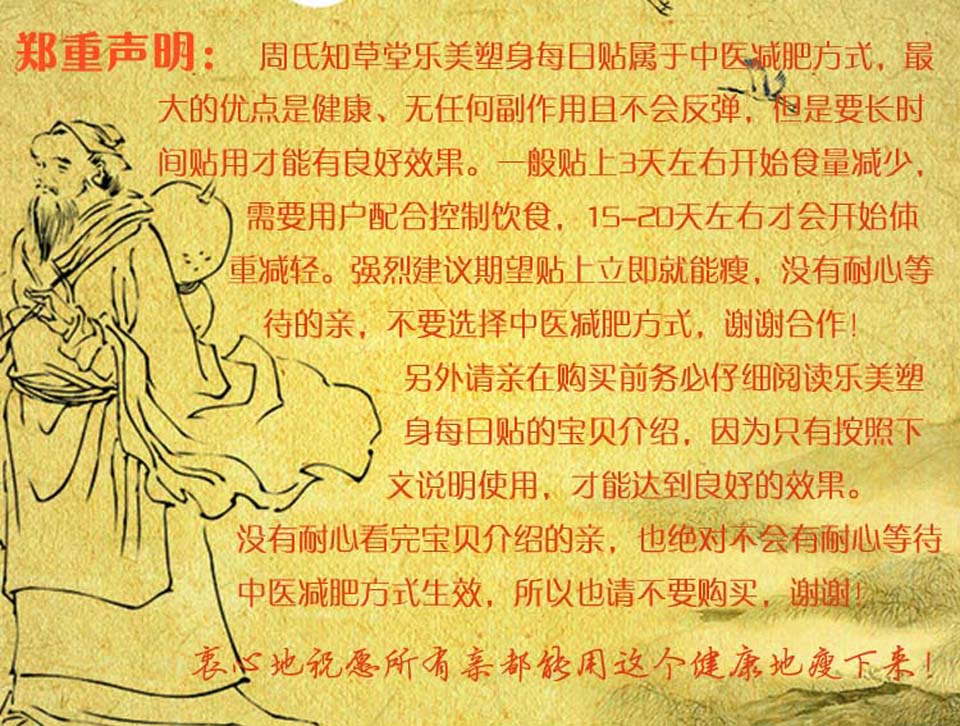 郑重声明：周氏知草堂乐美塑身每日贴属于中医减肥方式，最
大的优点是健康、无任何副作用且不会反弹，但是要长时
间贴用才能有良好效果。一般贴上3天左右开始食量减少，
需要用户配合控制饮食，15-20天左右才会开始体
重减轻。强烈建议期望贴上立即就能瘦，没有耐心等
待的亲，不要选择中医减肥方式，谢谢合作！
另外请亲在购买前务必仔细阅读乐美塑
身每日贴的宝贝介绍，因为只有按照下
文说明使用，才能达到良好的效果。
没有耐心看完宝贝介绍的亲，也绝对不会有耐心等待
中医减肥方式生效，所以也请不要购买，谢谢！
衷心地祝愿所有亲都能用这个健康地瘦下来！